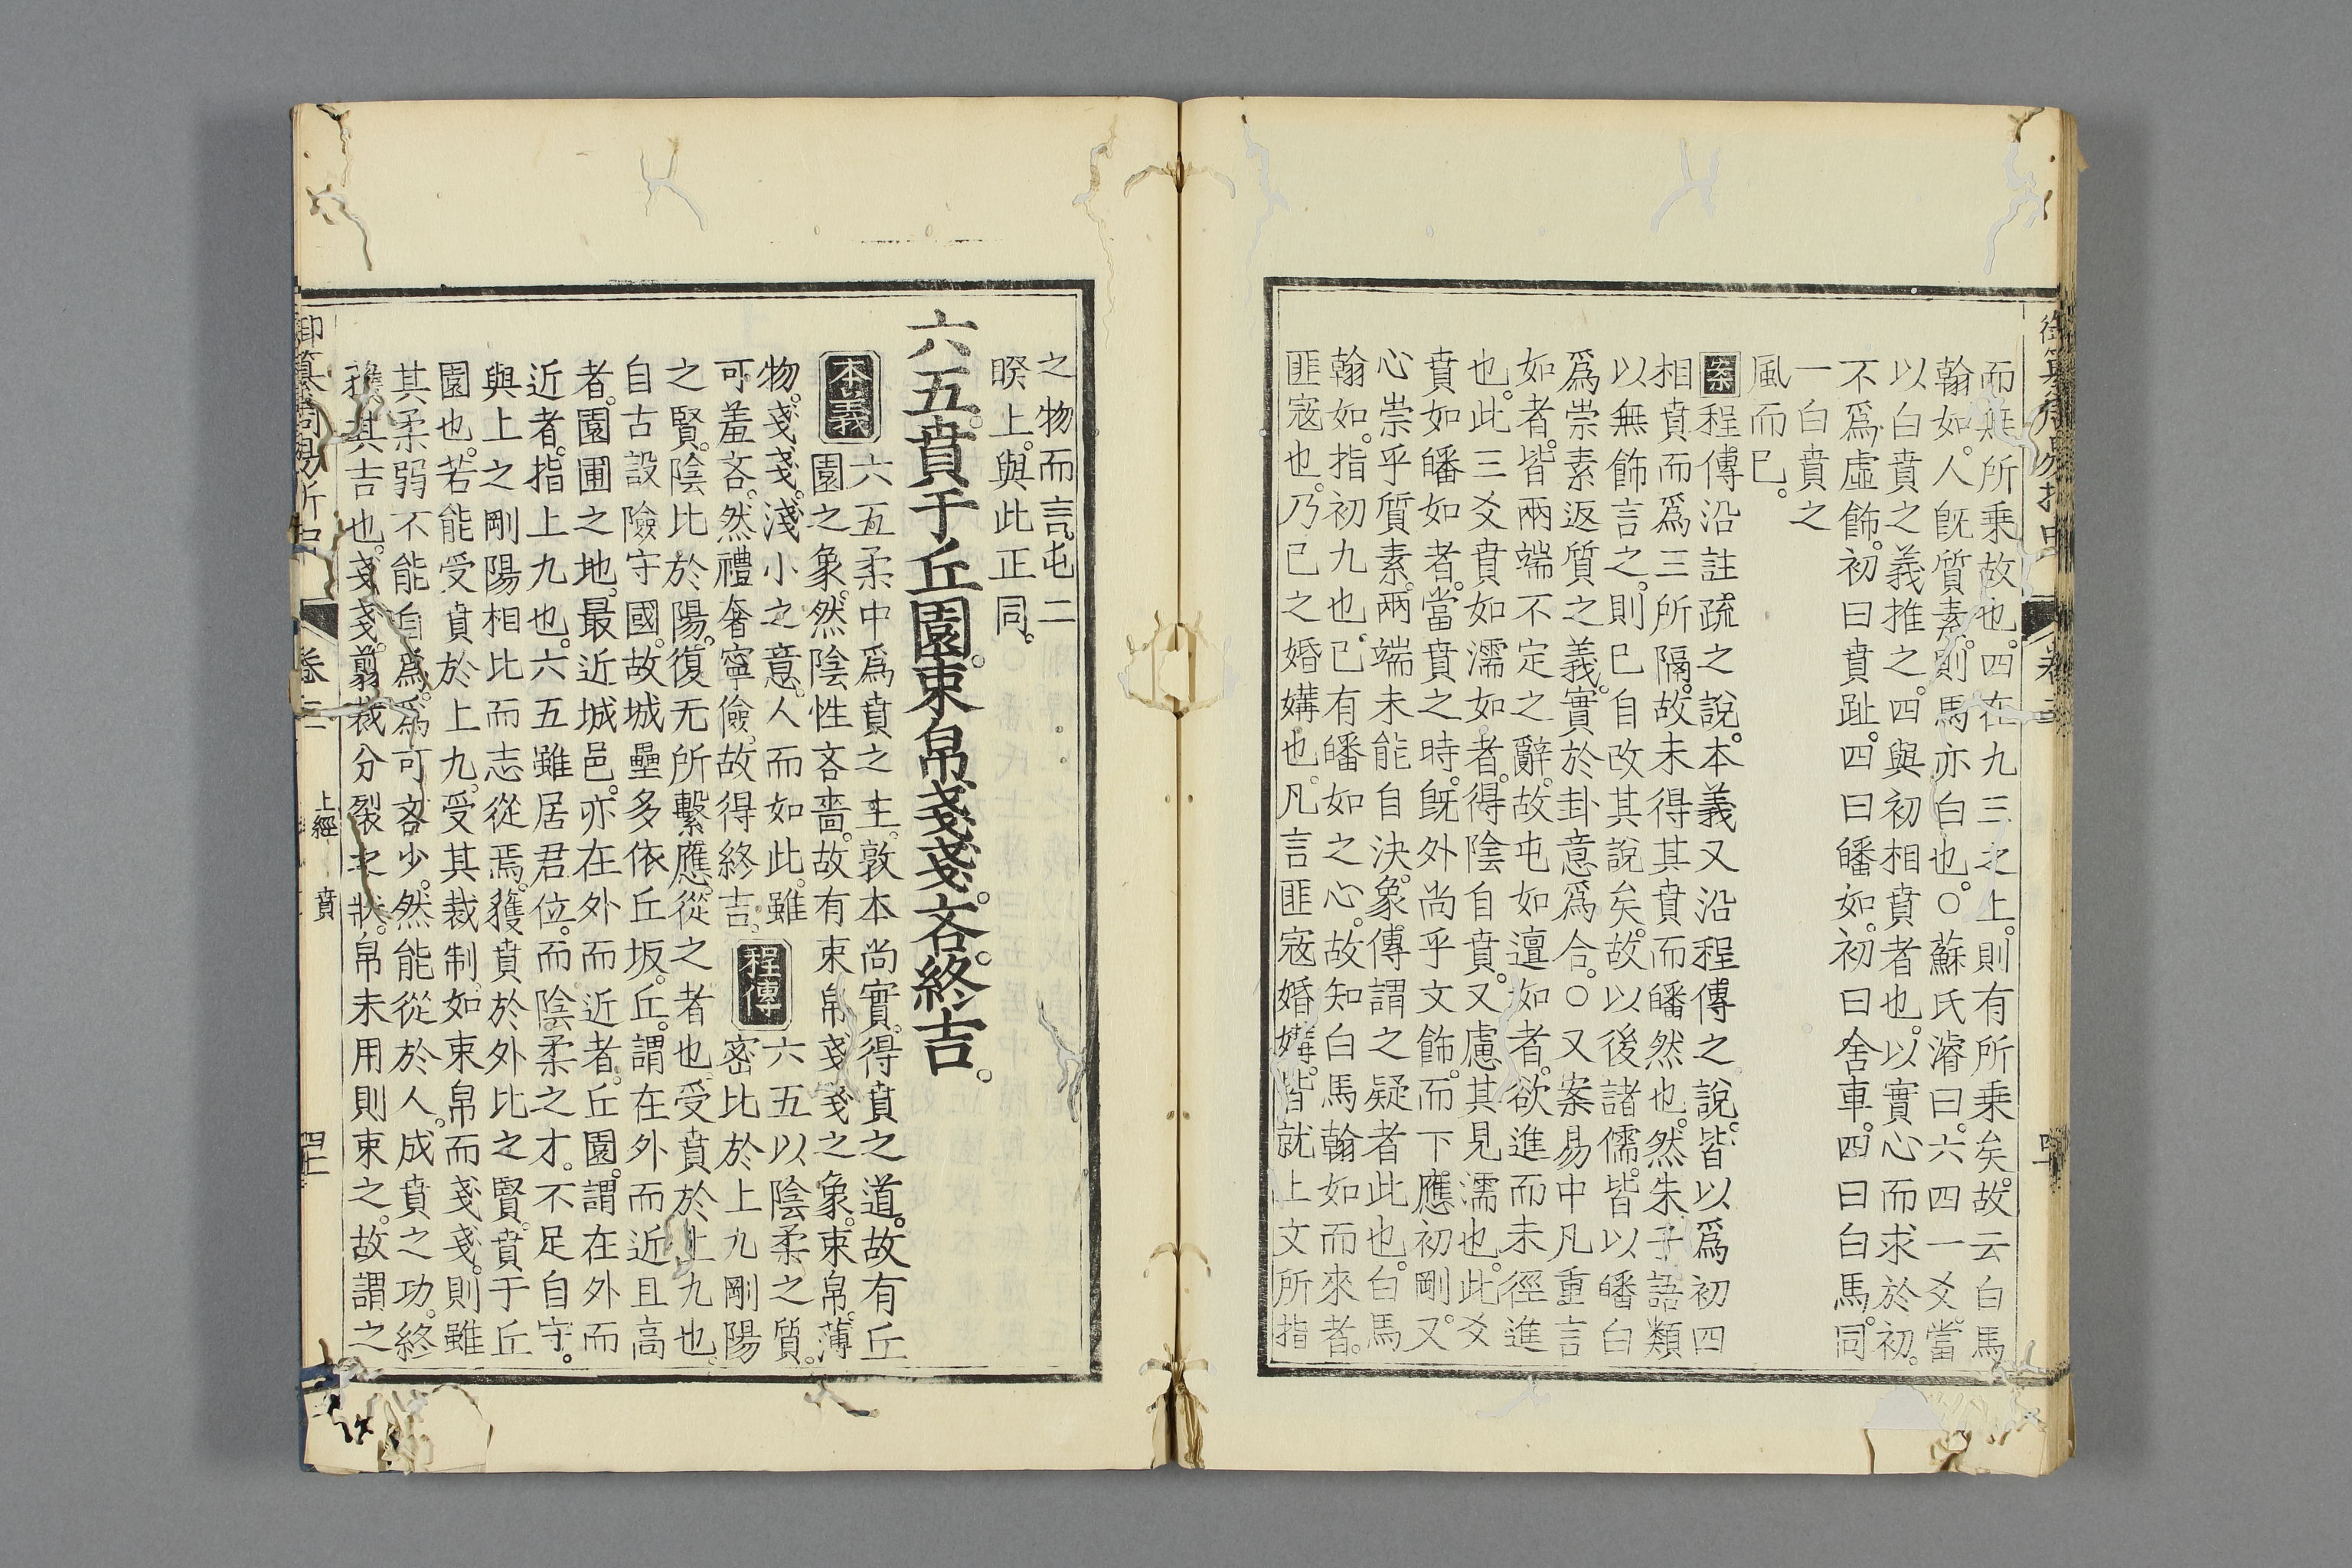 而無所乘故也。四在九三之上。則有所乘矣。故云白馬
翰如。人旣質素。則馬亦白也。○蘇氏濬曰。六四一爻。當
以白賁之義推之。四與初相賁者也。以實心而求於初。
不爲虛飾。初曰賁趾。四曰皤如。初曰舍車。四曰白馬。同
一白賁之
風而已。
案程傳沿註疏之說。本義又沿程傳之說。皆以爲初四
相賁而爲三所隔。故未得其賁而皤然也。然朱子語類
以無飾言之。則已自改其說矣。故以後諸儒。皆以皤白
爲崇素返質之義。實於卦意爲合。○又案易中凡重言
如者。皆兩端不定之辭。故屯如邅如者。欲進而未徑進
也。此三爻賁如濡如者。得陰自賁。又慮其見濡也。此爻
賁如皤如者。當賁之時。旣外尚乎文飾。而下應初剛。又
心崇乎質素。兩端未能自決。象傳謂之疑者此也。白馬
翰如。指初九也。已有皤如之心。故知白馬翰如而來者。
匪寇也。乃已之婚媾也。凡言匪寇婚媾。皆就上文所指
之物而言。屯二
睽上。與此正同。
六五。賁于丘園。束帛戔戔。吝。終吉。
本義 六五柔中爲賁之主。敦本尚實。得賁之道。故有丘
園之象。然陰性吝嗇。故有束帛戔戔之象。束帛。薄
物。戔戔。淺小之意。人而如此。雖
可羞吝。然禮奢寧儉。故得終吉。
程傳 六五以陰柔之質。
密比於上九剛陽
之賢。陰比於陽。復无所繫應。從之者也。受賁於上九也。
自古設險守國。故城壘多依丘坂。丘。謂在外而近且高
者。園圃之地。最近城邑。亦在外而近者。丘園。謂在外而
近者。指上九也。六五雖居君位。而陰柔之才。不足自守。
與上之剛陽相比而志從焉。獲賁於外比之賢。賁于丘
園也。若能受賁於上九。受其裁制。如束帛而戔戔。則雖
其柔弱不能自爲。爲可吝少。然能從於人。成賁之功。終
獲其吉也。戔戔。翦裁分裂之狀。帛未用則束之。故謂之
御纂周易折中
卷三
上經 賁